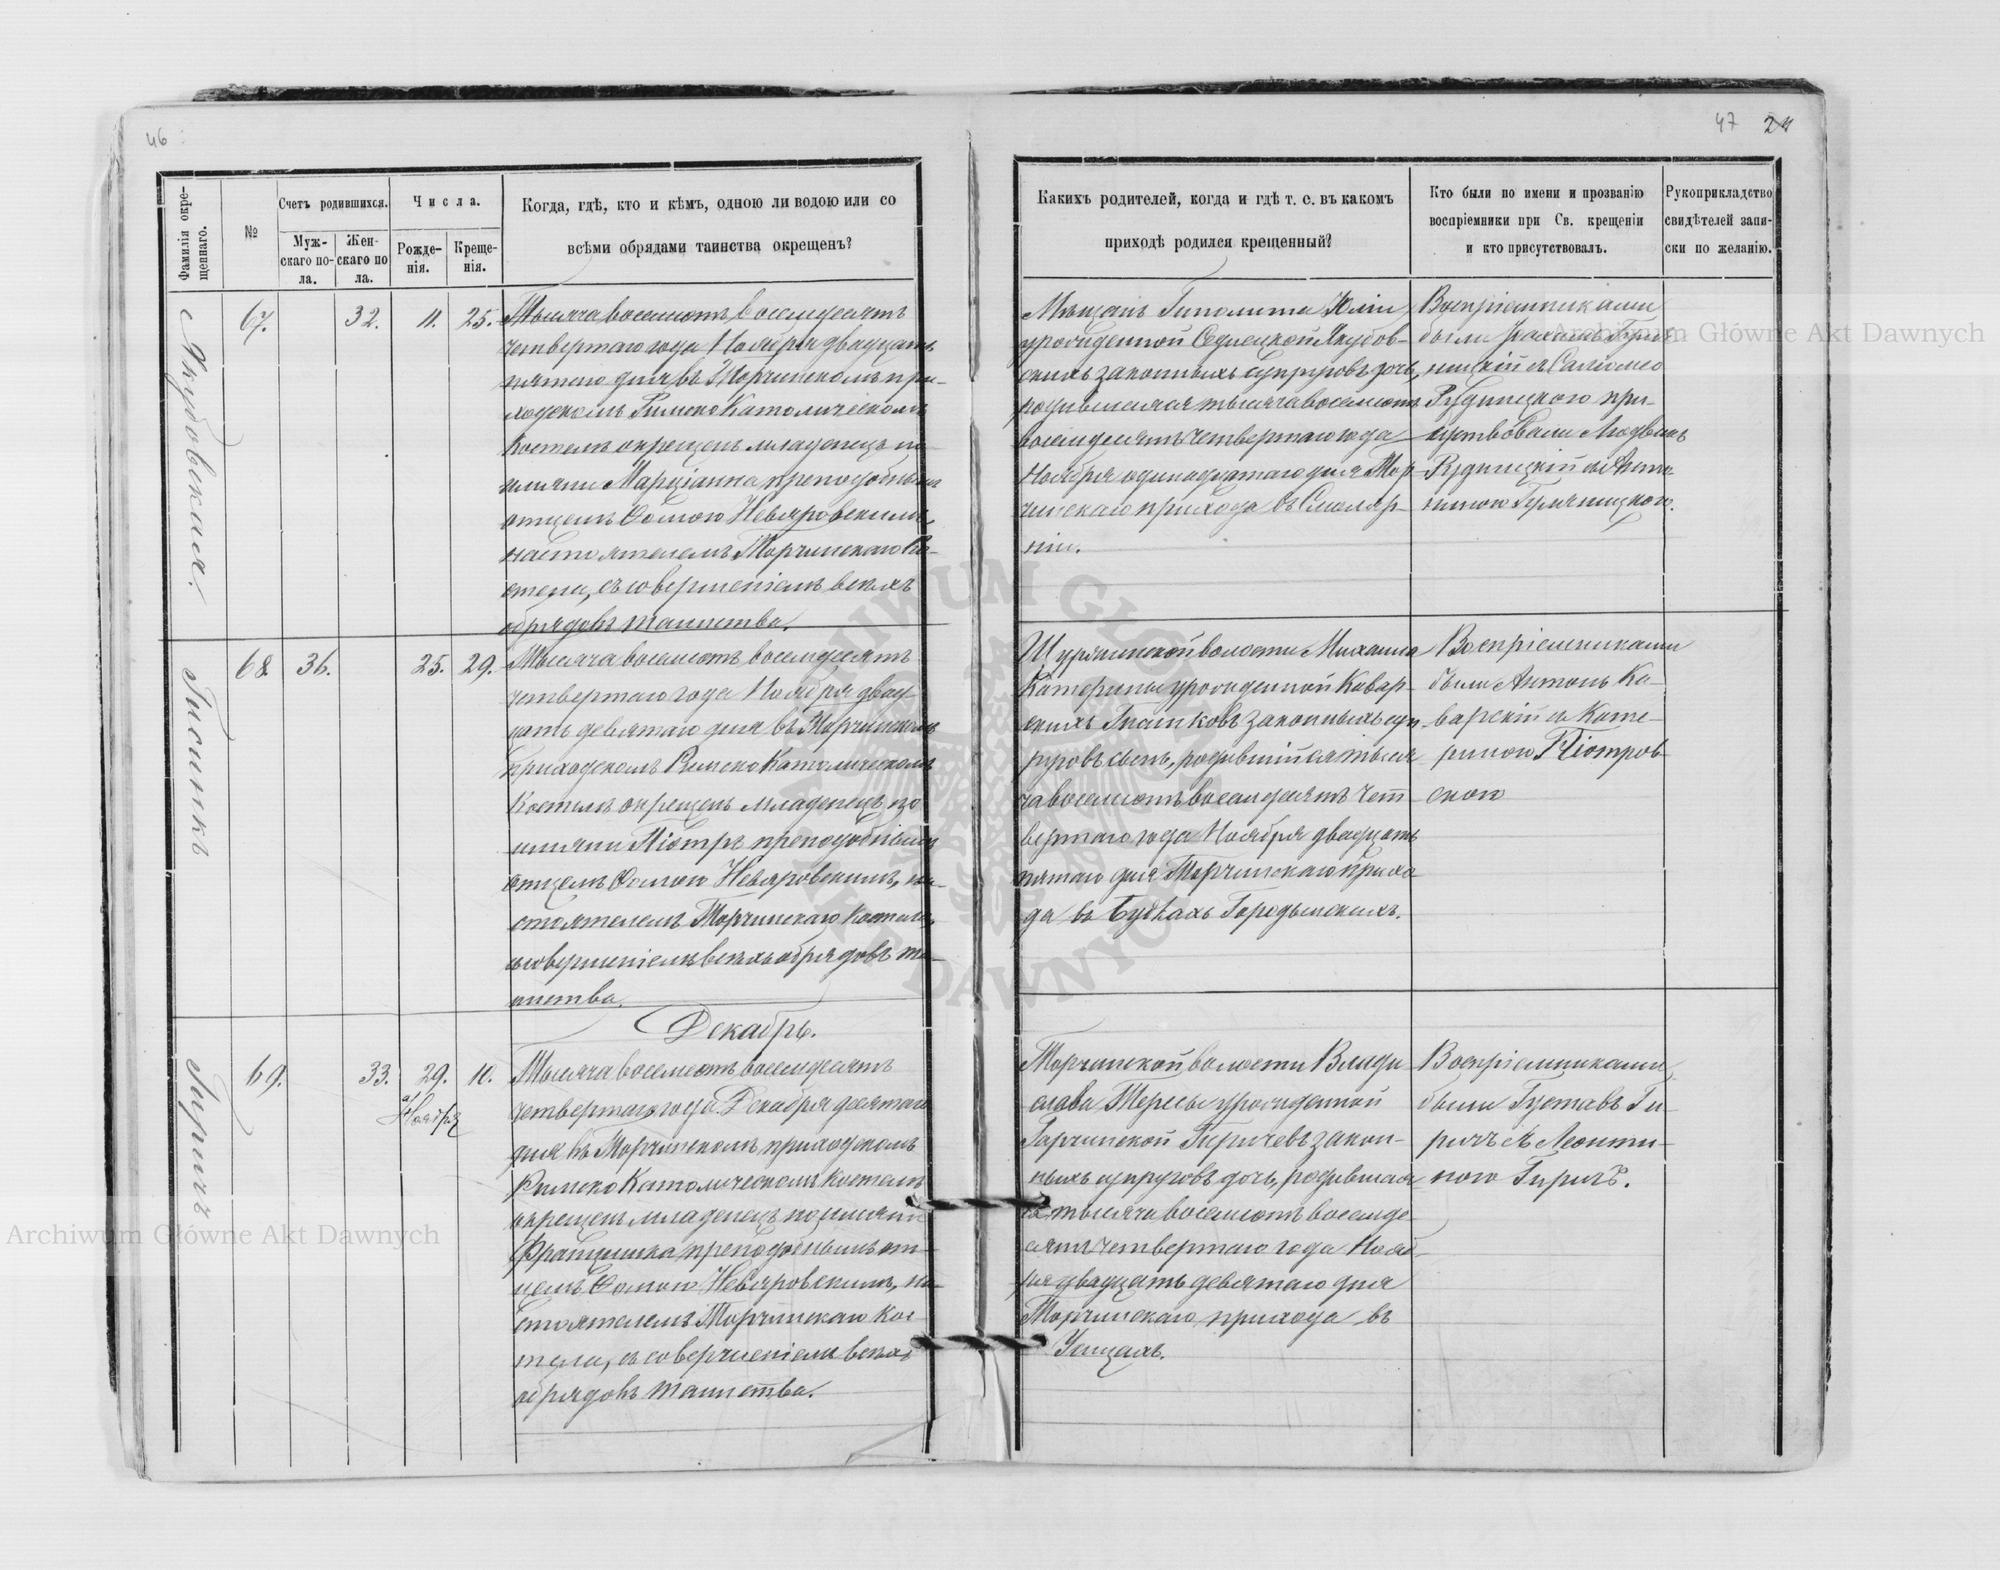 46
47 24
Фамилія окре-
щеннаго.
№
Счетъ родившихся.
Муж-
скаго по-
ла.
Жен-
скаго по
ла.
Числа.
Рожде-
нія.
Креще-
нія.
Когда, гдѣ, кто и кѣмъ, одною ли водою или со
всѣми обрядами таинства окрещенъ?
Какихъ родителей, когда и гдѣ т. е. въ какомъ
приходѣ родился крещенный?
Кто были по имени и прозванію
воспріемники при Св. крещеніи
и кто присутствовалъ.
Рукоприкладство
свидѣтелей запи-
ски по желанію.
Якубовская.
67. 32. 11. 25.
Тысяча восемьсотъ восемдесятъ
четвертаго года Ноября двадцать
пятаго дня въ Торчинскомъ при-
ходскомъ Римско Католическомъ
Костелѣ окрещенъ младенецъ
именемъ Марціанна преподобнымъ
отцемъ Ѳомою Невяровскимъ,
настоятелемъ Торчинскаго Ко-
стела, съ совершеніемъ всѣхъ
обрядовъ таинства.
Мѣщанъ Гиполита Юліи
урожденной Седлецкой Якубов-
скихъ законныхъ супруговъ дочь,
родившаяся тысяча восемьсотъ
восемдесятъ четвертаго года
Ноября одинадцатаго дня Тор-
чинскаго прихода въ Смоляр-
ніи.
Воспріемниками
были
и Саломею
Рудницкою при-
сутвовали Людвикъ
Рудницкій съ Анто-
ниною
Гнатикъ
68 36. 25. 29.
Тысяча восемьсотъ восемдесятъ
четвертаго года Ноября двад-
цать девятаго дня въ Торчинскомъ
приходскомъ Римско Католическомъ
Костелѣ окрещенъ младенецъ
именемъ Піотръ преподобнымъ
отцемъ Ѳомою Невяровскимъ, на-
стоятелемъ Торчинскаго Костела,
съ совершеніемъ всѣхъ обрядовъ та-
инства.
Щуринской волости Михаила
Катерины урожденной Кавар-
скихъ Гнатиковъ законныхъ суп-
руговъ сынъ, родившійся тыся
ча восемьсотъ восемдесятъ чет
вертаго года Ноября двадцать
пятаго дня Торчинскаго прихо
да въ Будкахъ
Воспріемниками
были Антонъ Ка-
варскій съ Кате-
риною Піотров-
скою
Декабрь.
Гиричъ
69. 33. 29. 10.
Ноября
Тысяча восемьсотъ восемдесятъ
четвертаго года Декабря десятаго
дня въ Торчинскомъ приходскомъ
Римско Католическомъ Костелѣ
окрещенъ младенецъ по имени
Францишка преподобнымъ от-
цемъ Ѳомою Невяровскимъ, на-
стоятелемъ Торчинскаго Кос
тела, съ совершеніемъ всѣхъ
обрядовъ таинства.
Торчинской волости Влади
слава Тересы урожденной
Гиричевъ закон-
ныхъ супруговъ дочь, родившая
ся тысяча восемьсотъ восемде-
сятъ четвертаго года Нояб-
ря двадцать девятаго дня
Торчинскаго прихода въ
Усицахъ.
Воспріемниками
были Густавъ Ги-
ричъ съ Леонти-
ною Гиричъ.
Archiwum Główne Akt Dawnych
Archiwum Główne Akt Dawnych